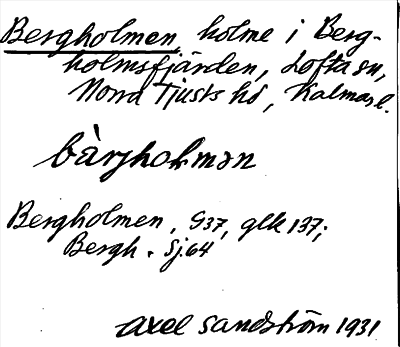 Bergholmen holme i Berg-
holmsfjärden, Lofta sn,
Norra Tjusts hd, Kalmar l.
bàrjholmən
Bergholmen, G37, glk 137;
Bergh. Sj.64
Axel Sandström 1931